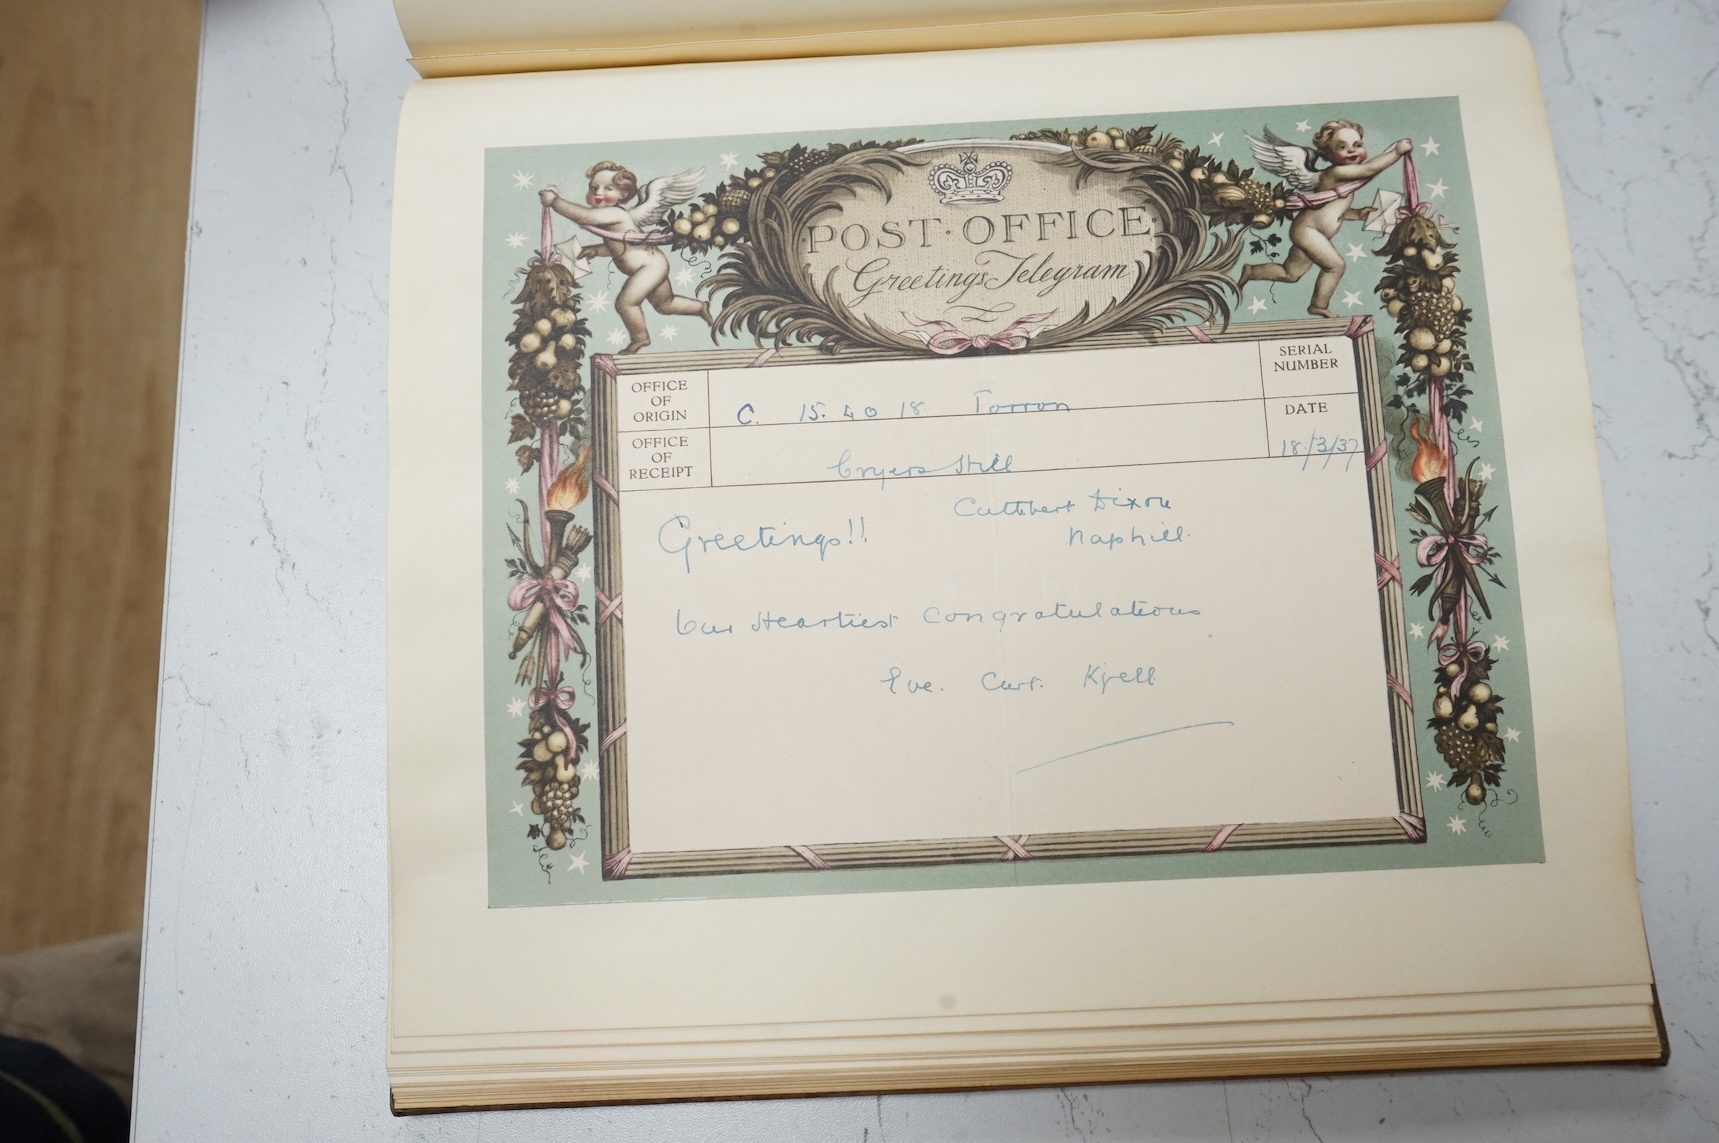 POST·OFFICE·
Greetings Telegram
OFFICE OF ORIGIN
C. 15.40 18 Torron
SERIAL NUMBER
OFFICE OF RECEIPT
Cryers Hill
DATE
18/3/37
Cuthbert Dixon
Greetings!!
Naphill.
Our Heartiest Congratulations
Eve. Curt. Kjell